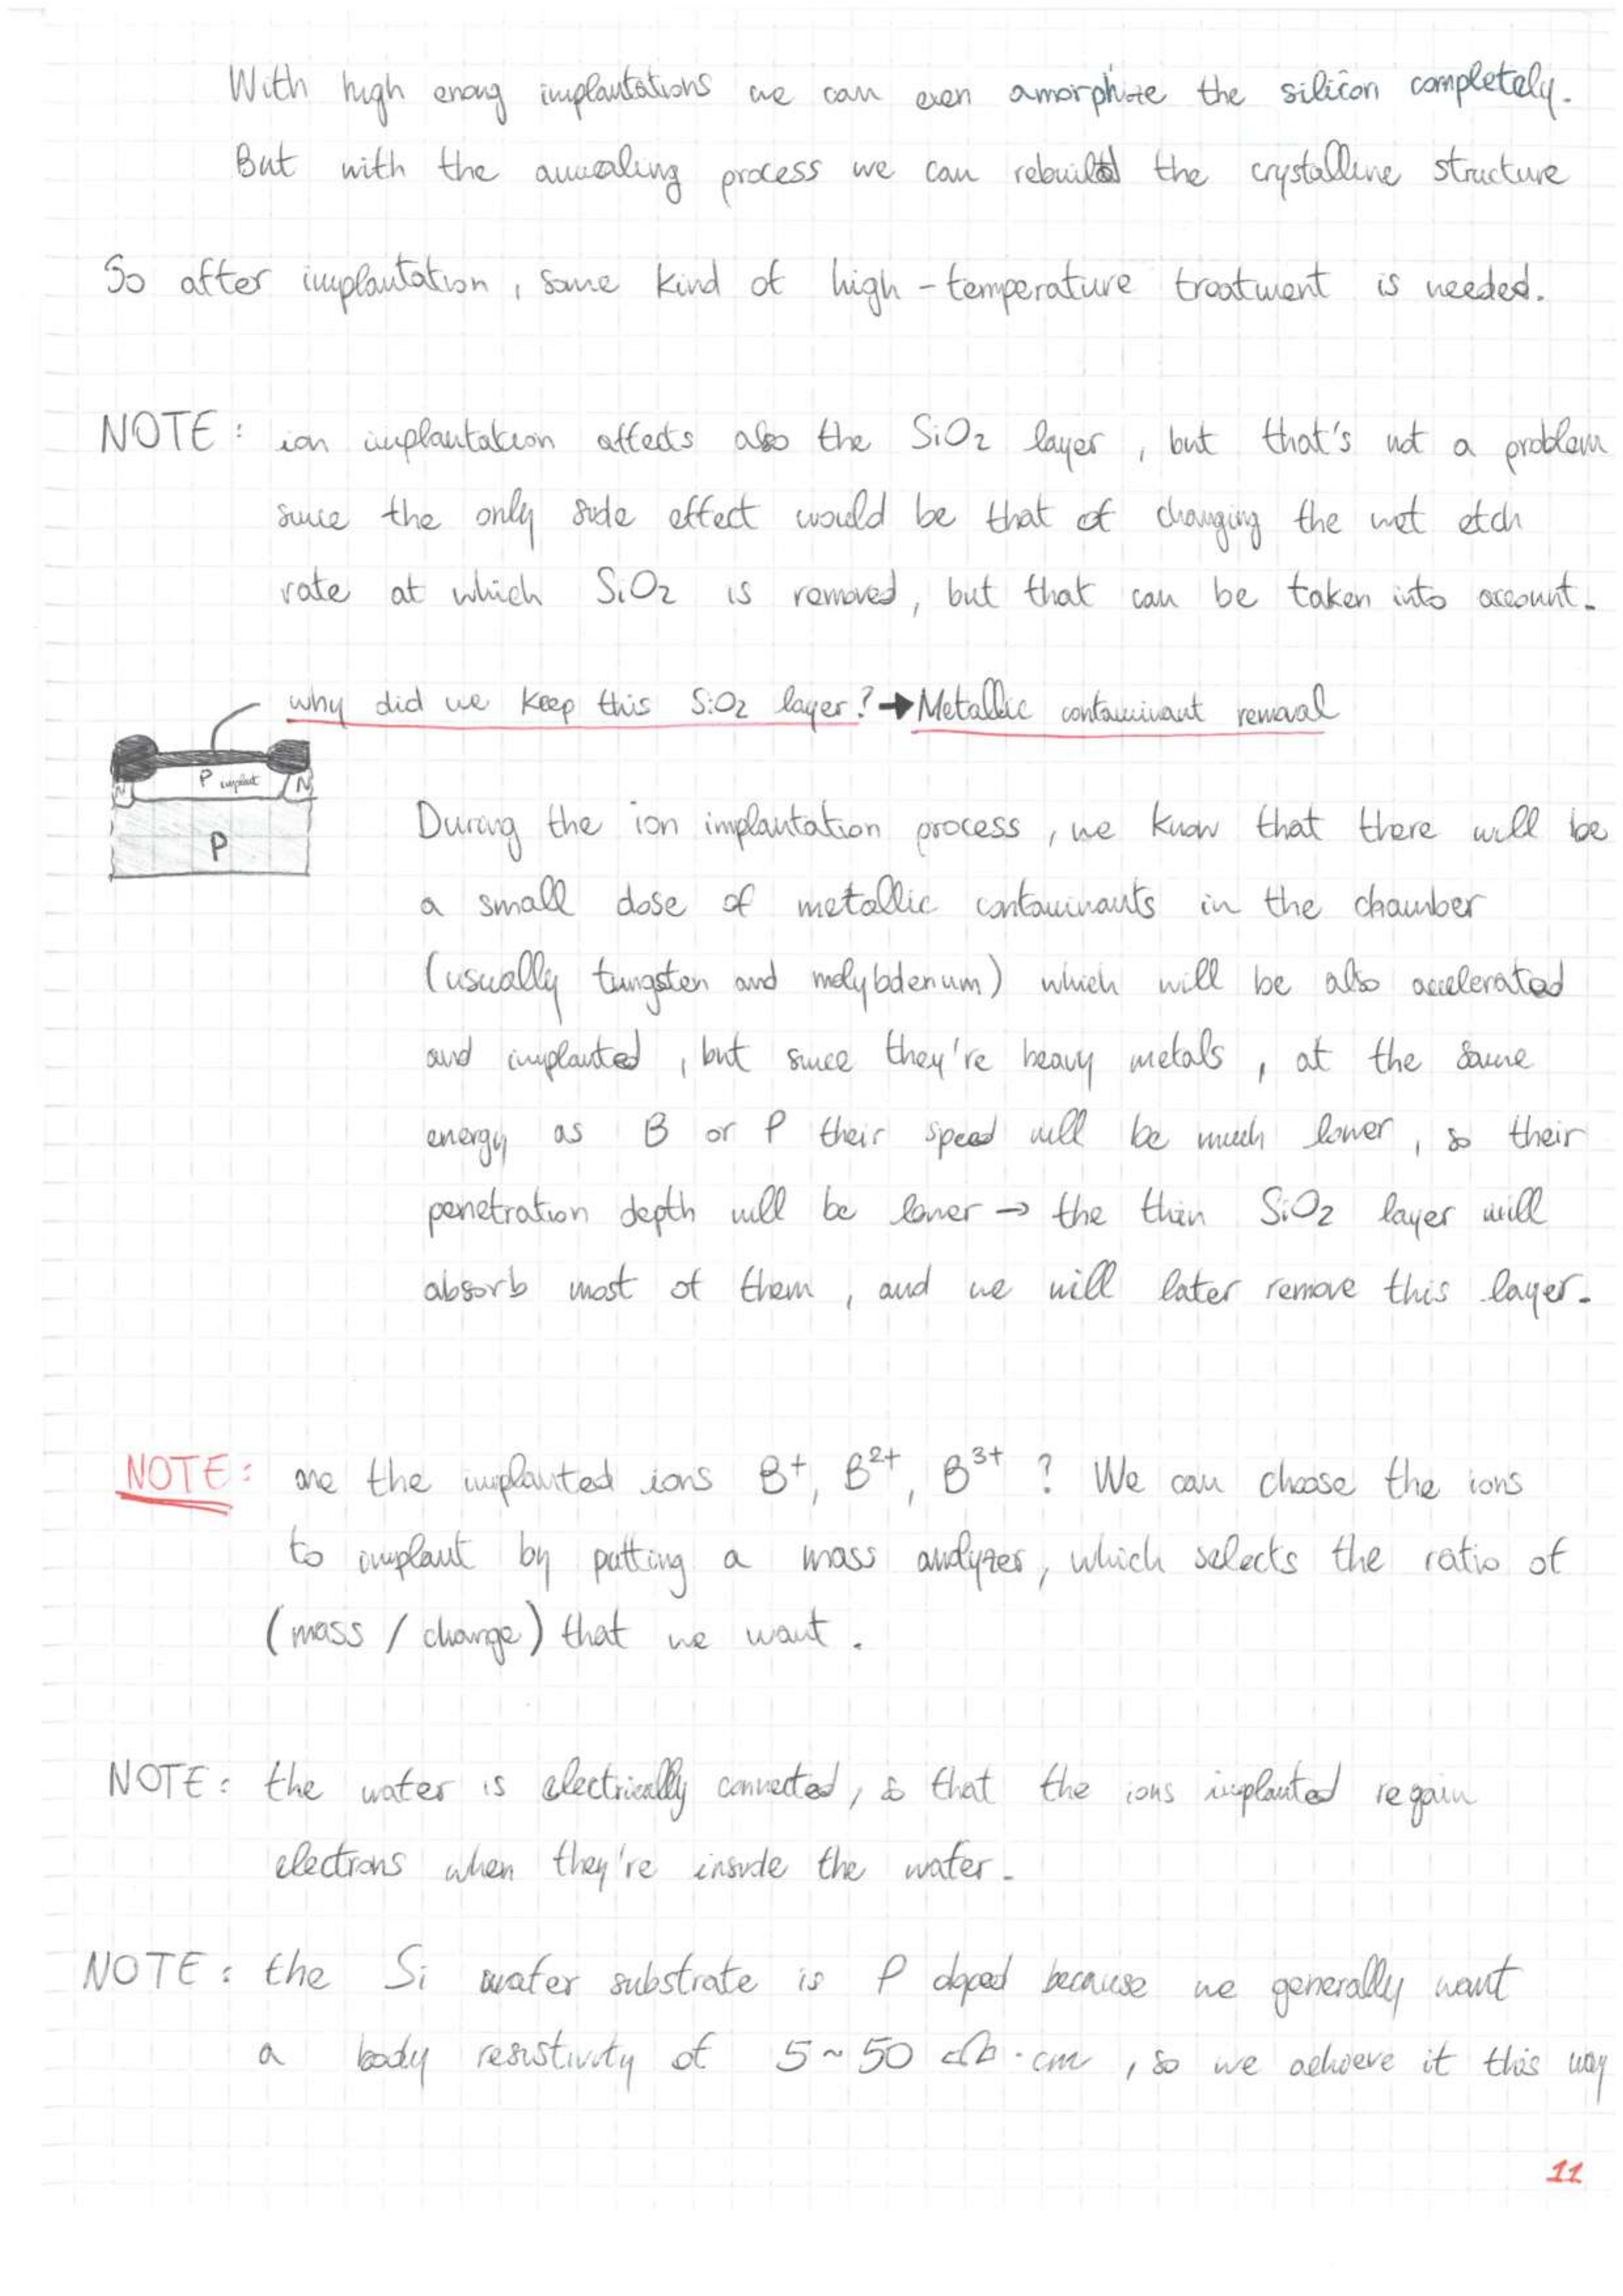 With high energy implantations we can even amorphize the silicon completely.
But with the annealing process we can rebuild the crystalline structure
So after implantation, some kind of high-temperature treatment is needed.
NOTE: ion implantation affects also the SiO2 layer, but that's not a problem
since the only side effect would be that of changing the wet etch
rate at which SiO2 is removed, but that can be taken into account.
why did we keep this SiO2 layer? → Metallic contaminant removal
P implant
N
N
P
During the ion implantation process, we know that there will be
a small dose of metallic contaminants in the chamber
(usually tungsten and molybdenum) which will be also accelerated
and implanted, but since they're heavy metals, at the same
energy as B or P their speed will be much lower, so their
penetration depth will be lower → the thin SiO2 layer will
absorb most of them, and we will later remove this layer.
NOTE: are the implanted ions B+, B2+, B3+ ? We can choose the ions
to implant by putting a mass analyzer, which selects the ratio of
(mass / charge) that we want.
NOTE: the wafer is electrically connected, so that the ions implanted regain
electrons when they're inside the wafer.
NOTE: the Si wafer substrate is P doped because we generally want
a body resistivity of 5~50 Ω·cm, so we achieve it this way
11